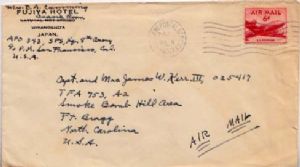 Mrs. B. A. Cumming
FUJIYA HOTEL
MIYANOSHITA
JAPAN.
APO 343, SPS, Hq. 8th Army
% P.M. San Francisco, Cal.
U.S.A.
AIR MAIL
6¢
Capt. and Mrs. James W. Kerr III, 025417
TFA 753, A2
Smoke Bomb Hill Area
Ft. Bragg
North Carolina
U.S.A.
AIR MAIL